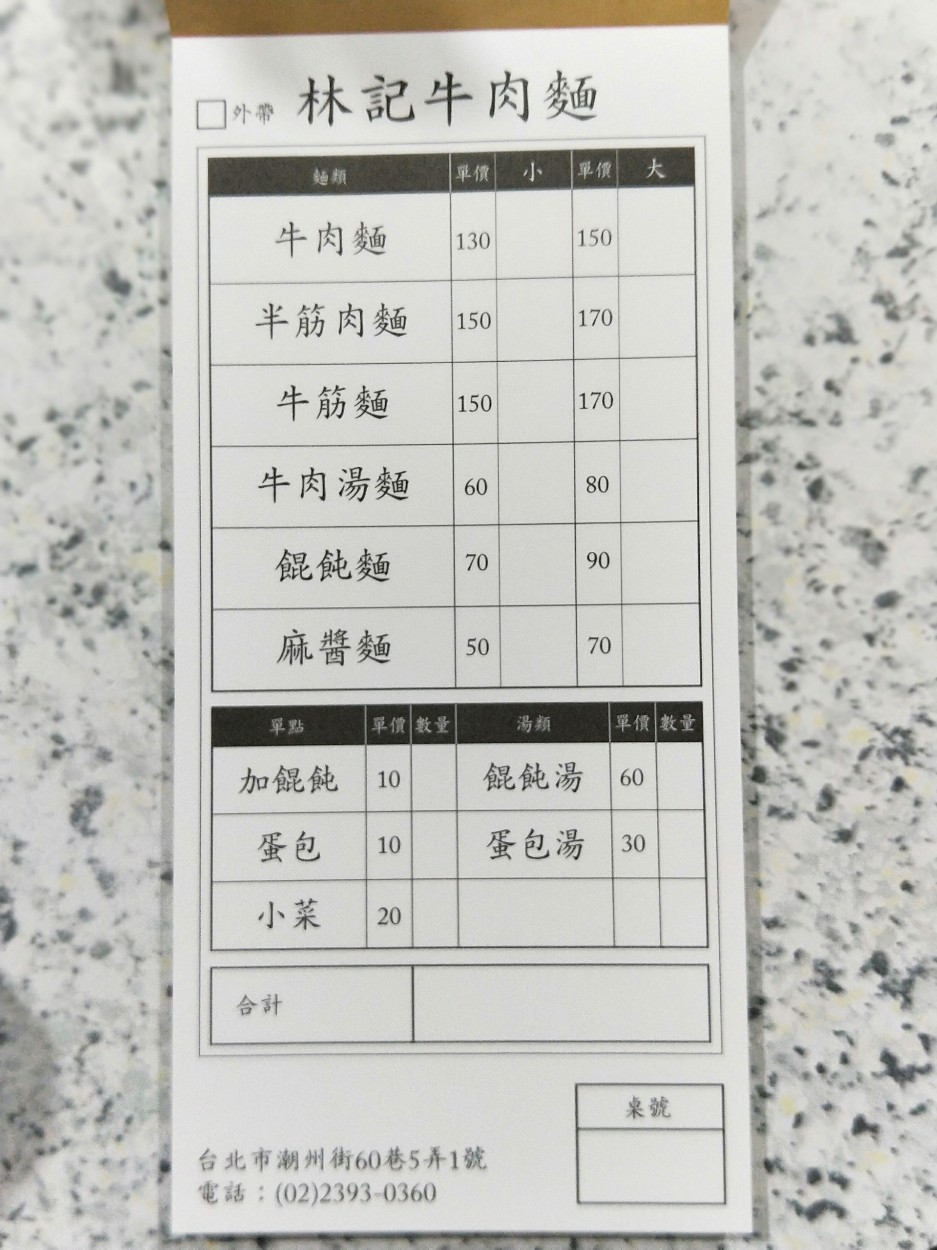 外帶 林記牛肉麵
麵類 單價 小 單價 大
牛肉麵 130 150
半筋肉麵 150 170
牛筋麵 150 170
牛肉湯麵 60 80
餛飩麵 70 90
麻醬麵 50 70
單點 單價 數量 湯類 單價 數量
加餛飩 10 餛飩湯 60
蛋包 10 蛋包湯 30
小菜 20
合計
桌號
台北市潮州街60巷5弄1號
電話：(02)2393-0360